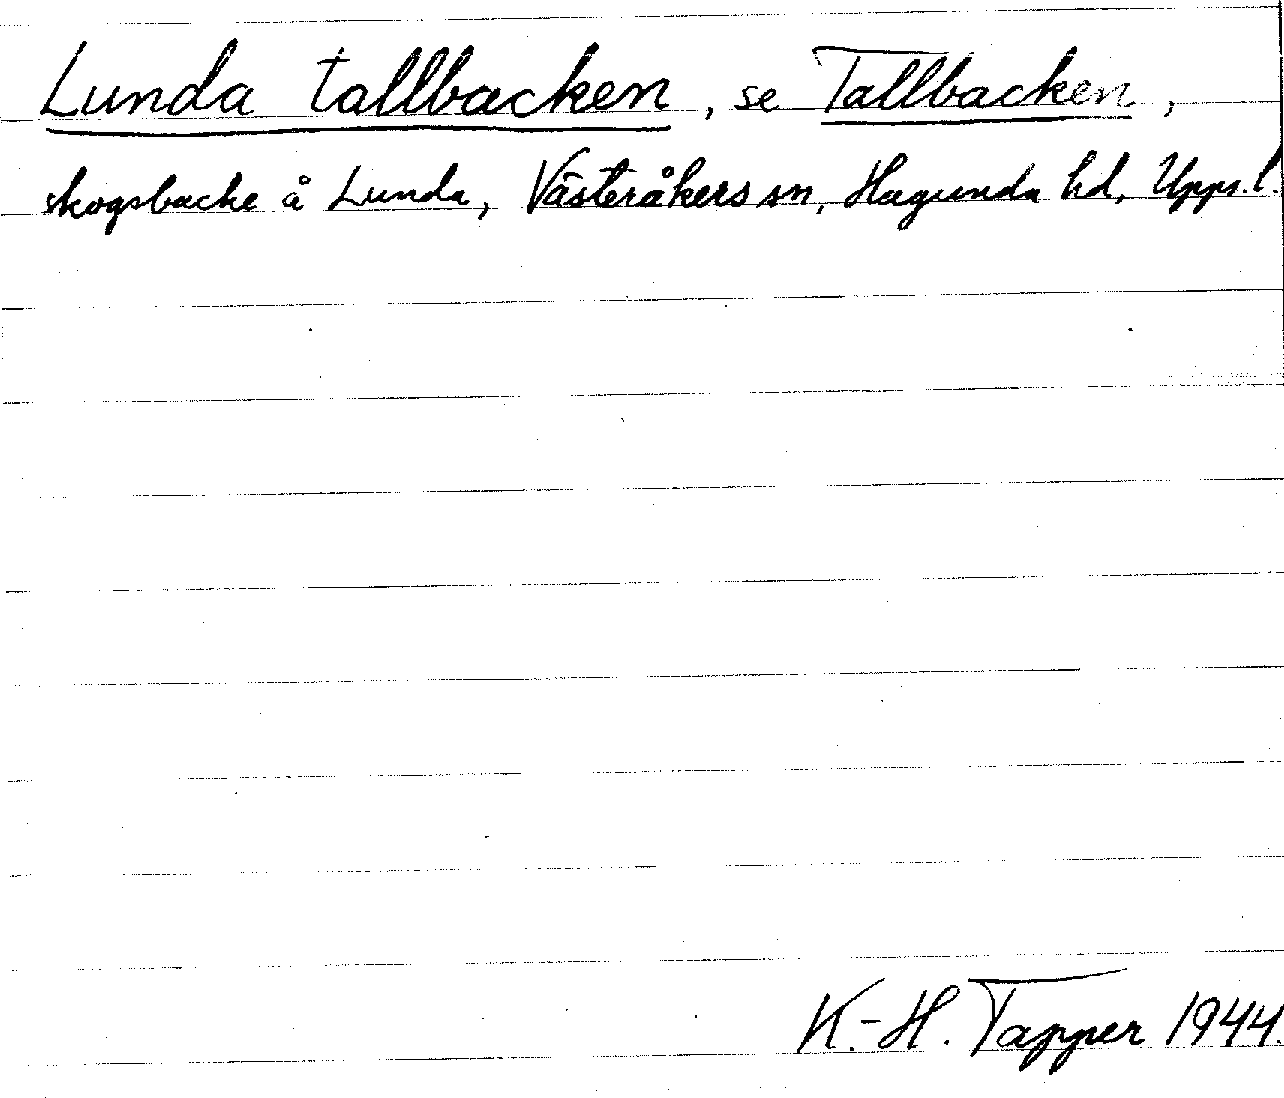 Lunda tallbacken, se Tallbacken,
skogsbacke å Lunda, Västeråkers sn, Hagunda hd, Upps. l.
K.-H. Tapper 1944.